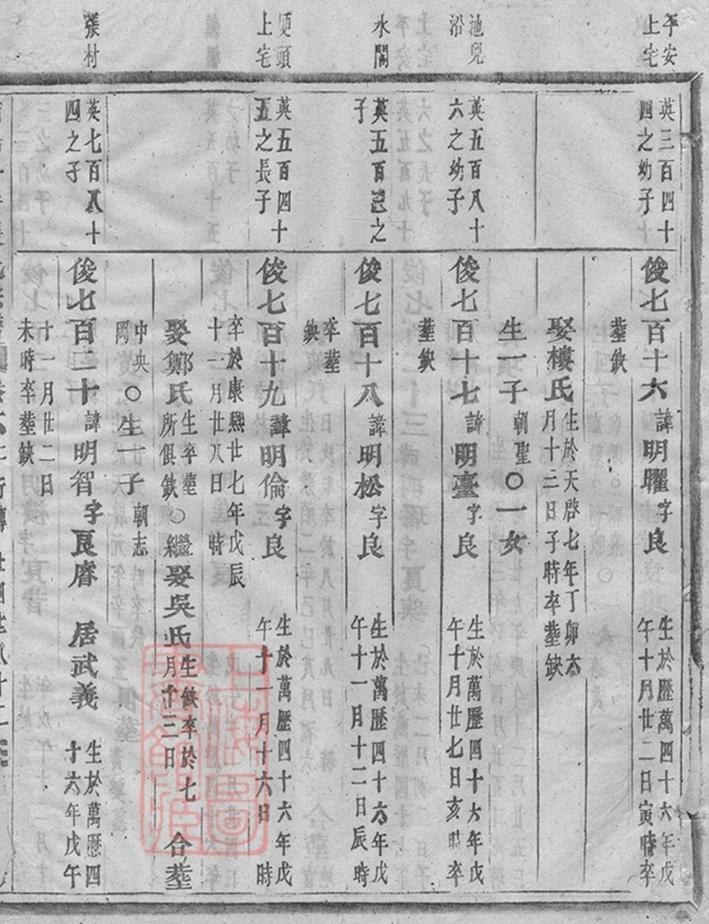 平安
上宅
英三百四十
四之幼子
俊七百十六諱明曜字良
生於萬歷四十六年戊
午十月廿二日寅時卒
塟缺
娶樓氏生於天啟七年丁卯六
月十二日子時卒塟缺
生一子朝聖○一女
池兒
沿
英五百八十
六之幼子
俊七百十七諱明臺字良
生於萬歷四十六年戊
午十月廿七日亥時卒
塟缺
水閣
英五百
之
子
俊七百十八諱明松字良
生於萬歷四十六年戊
午十一月十二日辰時
卒塟
缺
頭
上宅
英五百四十
五之長子
俊七百十九諱明倫字良
生於萬歷四十六年戊
午十一月十六日時
卒於康熙廿七年戊辰
十二月廿八日時
娶鄭氏生卒塟
所俱缺○繼娶吳氏生缺卒於七
月十三日合塟
中央
岡○生一子朝志
張村
英七百八十
四之子
俊七百二十諱明智字良睿居武義
生於萬歷四
十六年戊午
十一月廿二日
未時卒塟缺